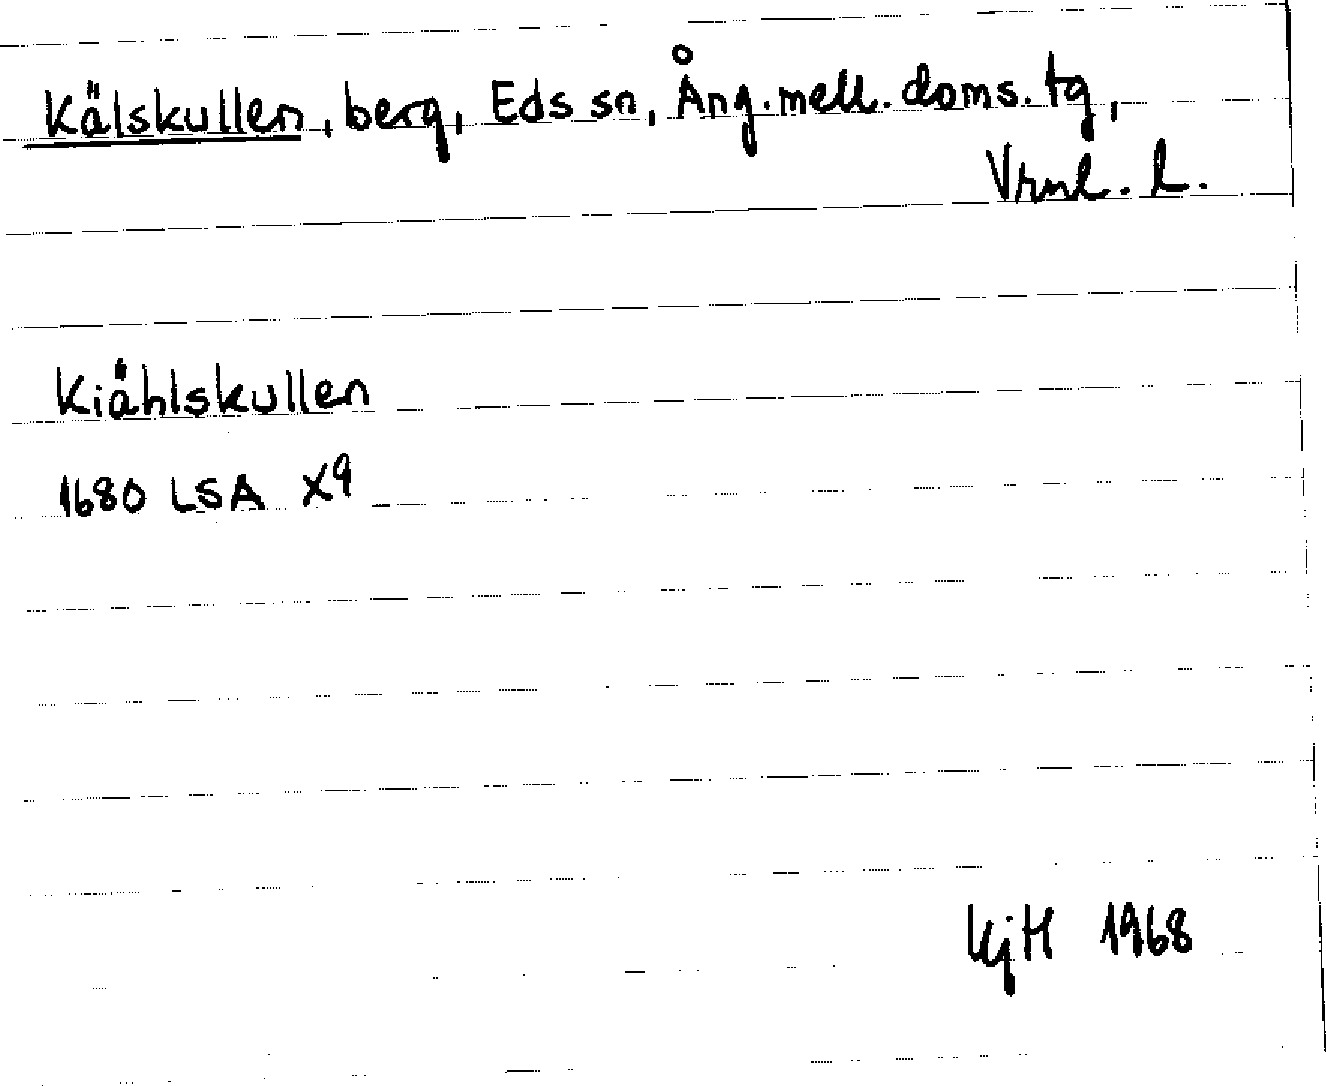 Kälskullen, berg, Eds sn, Ång. mell. doms. tg,
Vrml. l.
Kiählskullen
1680 LSA X9
KjM 1968